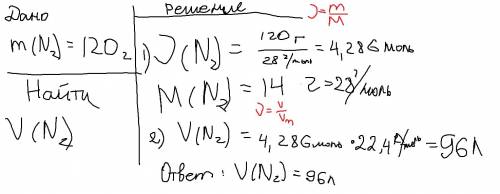 Дано
m(N₂) = 120г
Найти
V(N₂)
Решение
ν = m/M
1) ν(N₂) = 120 г / 28 г/моль = 4,286 моль
M(N₂) = 14 · 2 = 28 г/моль
ν = V/Vm
2) V(N₂) = 4,286 моль · 22,4 л/моль = 96 л
Ответ : V(N₂) = 96 л